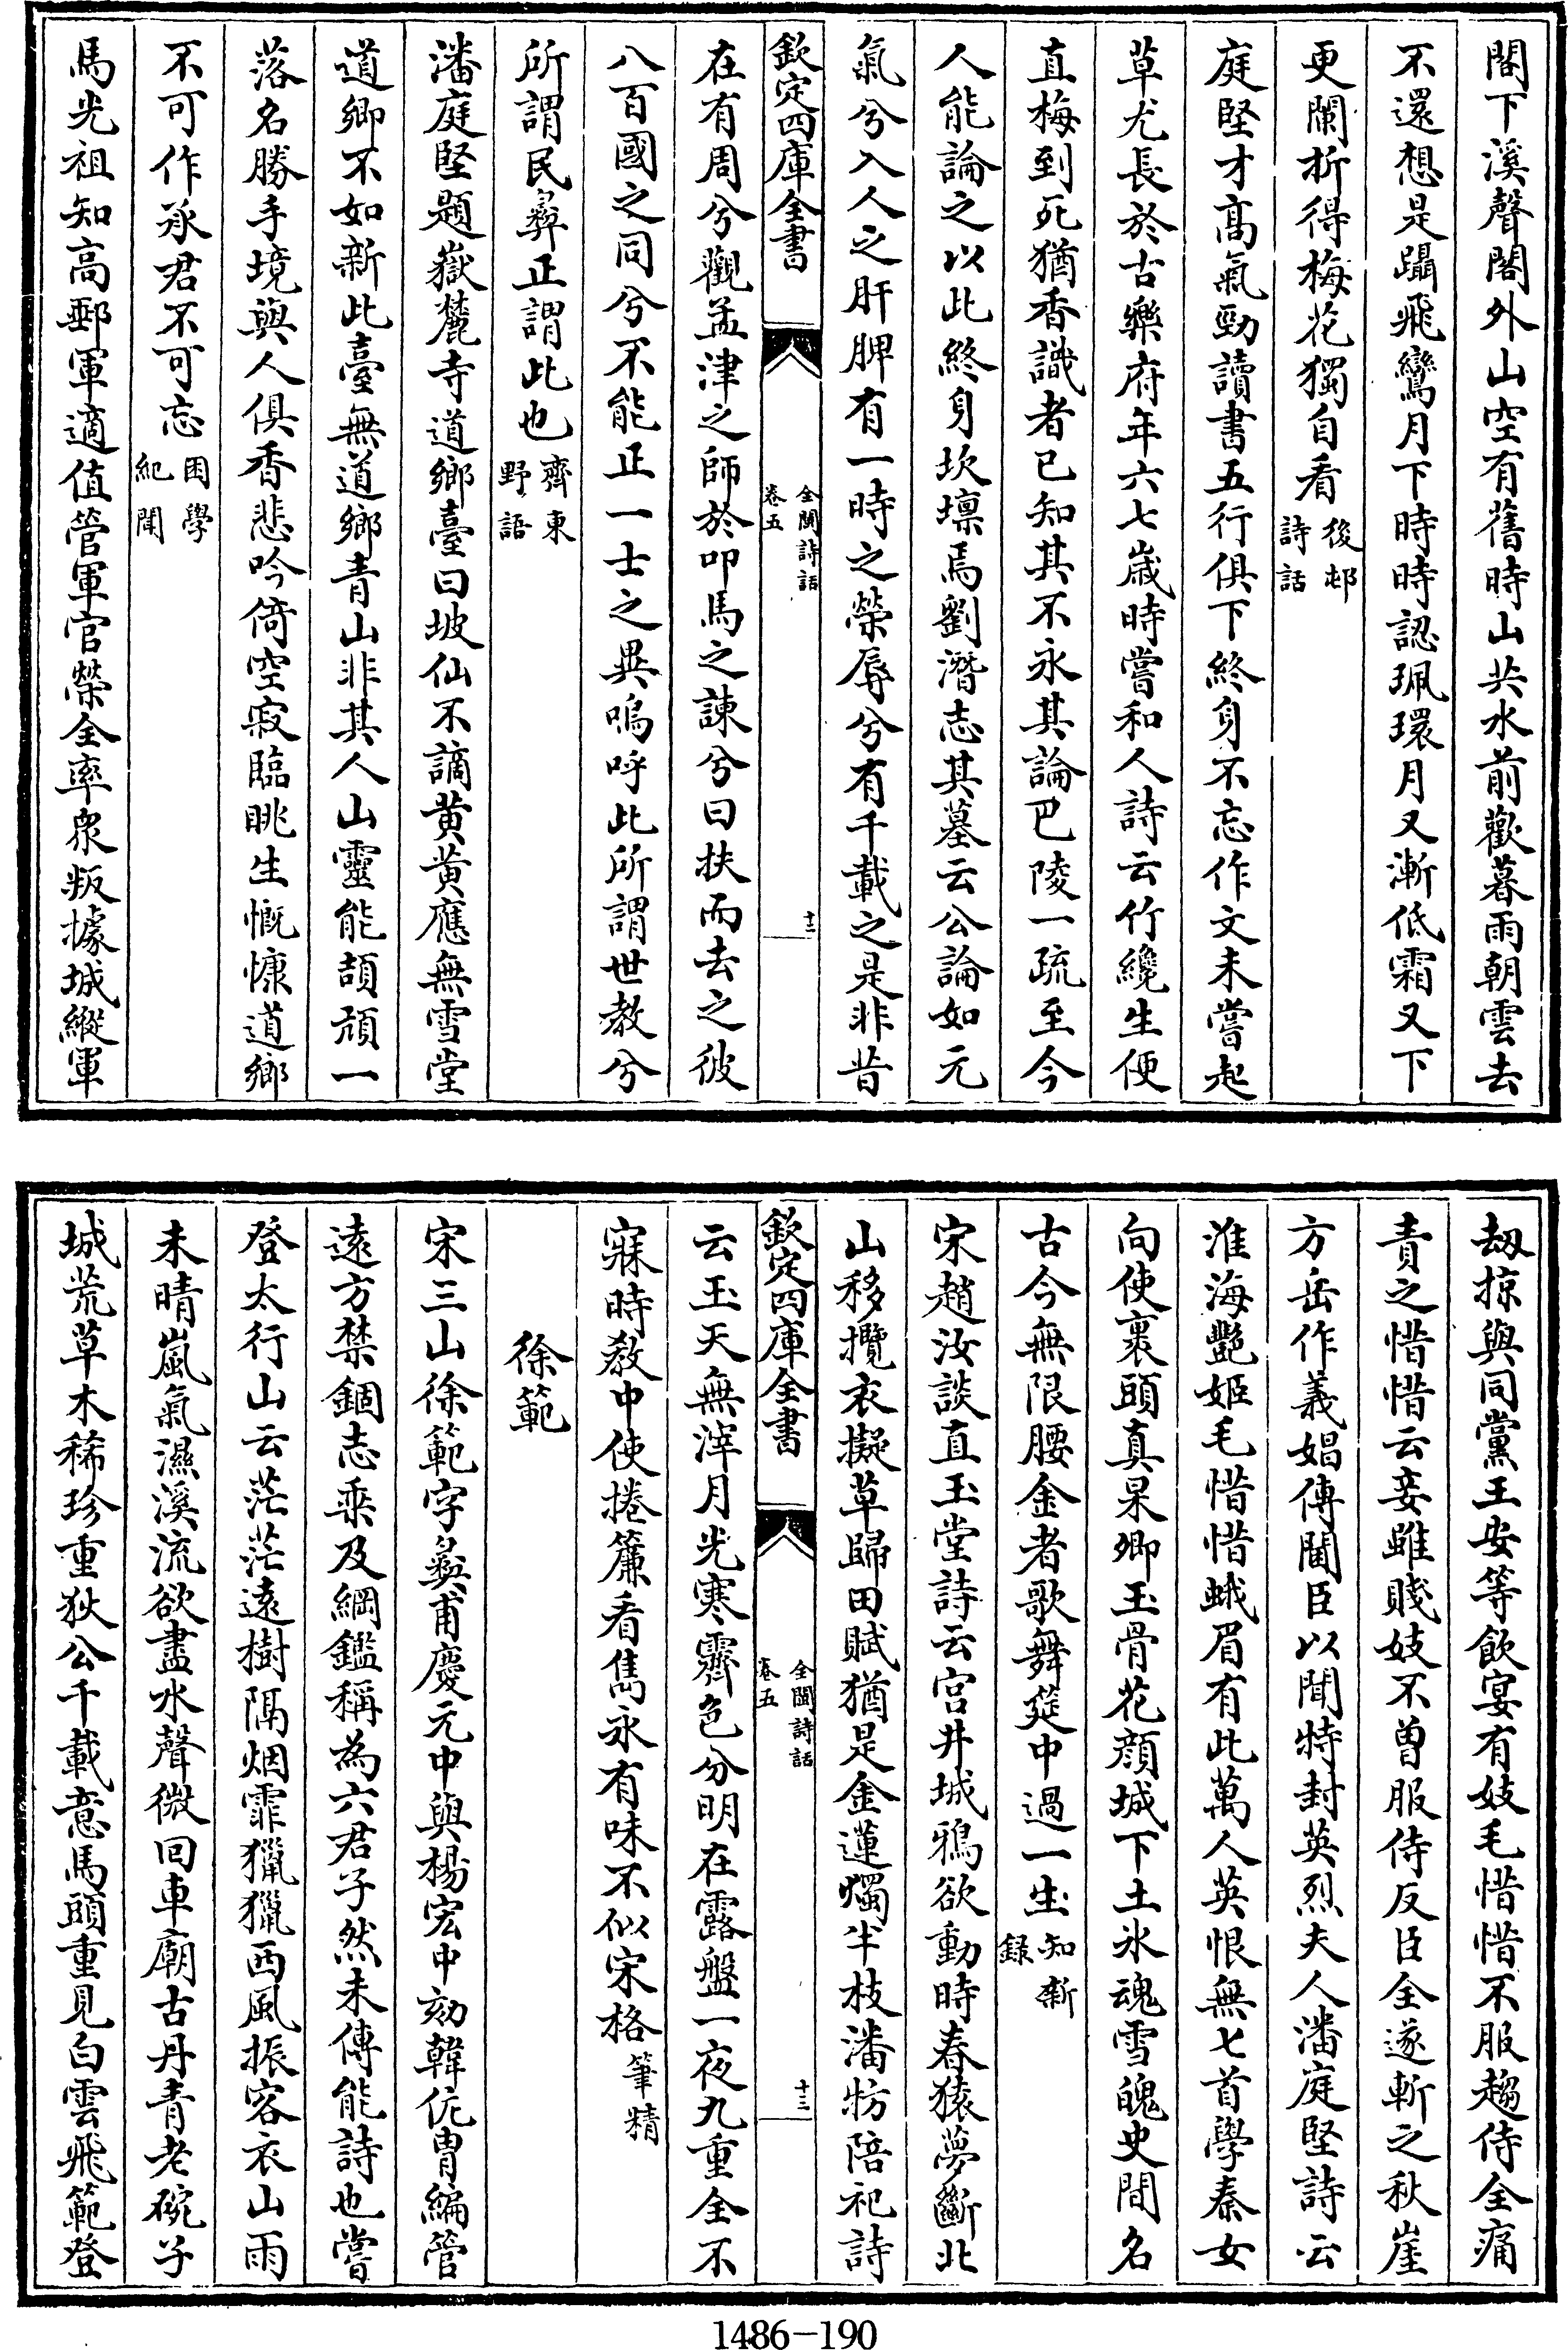 閣下溪聲閣外山空有舊時山共水前歡暮雨朝雲去
不還想是躡飛鸞月下時時認珮環月又漸低霜又下
更闌折得梅花獨自看後邨詩話
庭堅才髙氣勁讀書五行俱下終身不忘作文未嘗起
草尤長於古樂府年六七歲時嘗和人詩云竹纔生便
直梅到死猶香識者已知其不永其論巴陵一疏至今
人能論之以此終身坎壈焉劉潛志其墓云公論如元
氣兮入人之肝脾有一時之榮辱兮有千載之是非昔
欽定四庫全書
全閩詩話
卷五
十二
在有周兮觀孟津之師於叩馬之諫兮曰扶而去之彼
八百國之同兮不能正一士之異嗚呼此所謂世教兮
所謂民彛正謂此也齊東野語
潘庭堅題嶽麓寺道鄉臺曰坡仙不謫黄黄應無雪堂
道卿不如新此臺無道鄉青山非其人山靈能頡頏一
落名勝手境與人俱香悲吟倚空寂臨眺生慨慷道鄉
不可作承君不可忘困學紀聞
馬光祖知高郵軍適值管軍官榮全率衆叛據城縱軍
劫掠與同黨王安等飲宴有妓毛惜惜不服趨侍全痛
責之惜惜云妾雖賤妓不曽服侍反臣全遂斬之秋崖
方岳作義娼傳閫臣以聞特封英烈夫人潘庭堅詩云
淮海艷姬毛惜惜蛾眉有此萬人英恨無七首學秦女
向使裹頭真杲卿玉骨花顔城下土氷魂雪魄史間名
古今無限腰金者歌舞筵中過一生知新録
宋趙汝談直玉堂詩云宫井城鴉欲動時春猿夢斷北
山移攬衣擬草歸田賦猶是金蓮燭半枝潘牥陪祀詩
欽定四庫全書
全閩詩話
卷五
十三
云玉天無滓月光寒霽色分明在露盤一夜九重全不
寐時教中使捲簾看雋永有味不似宋格筆精
徐範
宋三山徐範字彛甫慶元中與楊宏中劾韓侂胄編管
遠方禁錮志乘及綱鑑稱為六君子然未傳能詩也嘗
登太行山云茫茫遠樹隔烟霏獵獵西風振客衣山雨
未晴嵐氣濕溪流欲盡水聲微回車廟古丹青老碗子
城荒草木稀珍重狄公千載意馬頭重見白雲飛範登
1486-190